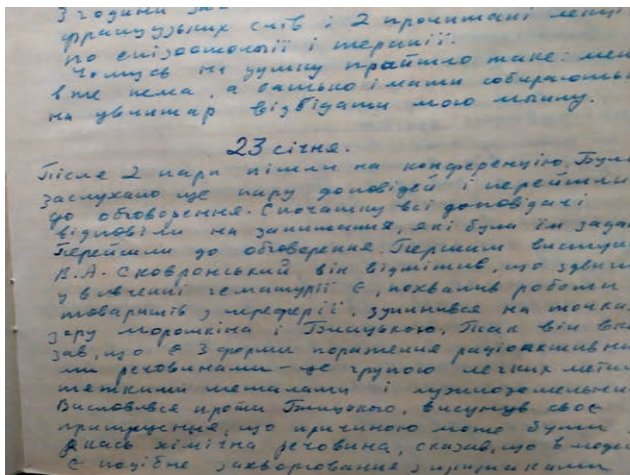 3 години
французьких слів і 2 прочитані лекції
по епізоотології і терапії.
Чомусь на думку прийшло таке: мене
вже нема, а батько і мати собираються
на цвинтар відвідати мою могилу.
23 січня.
Після 2 пари пішли на конференцію. Було
заслухано ще пару доповідей і перейшли
до обговорення. Спочатку всі доповідачі
відповіли на запитання, які були їм задані
Перейшли до обговорення. Першим виступив
В.А. Сковронський, він відмітив, що здвиги
у вивченні гематурії є, похвалив роботи
товаришів з переферії, зупинився на точках
зору Морошкіна і Так він вка
зав, що є 3 форми пораження радіоактивни
ми речовинами – це групою легких
тяжкими металами і лужноземельни
Висловився проти висунув своє
припущення, що причиною може бути
якась хімічна речовина, сказав, що в людей
є подібне захворювання з признаками